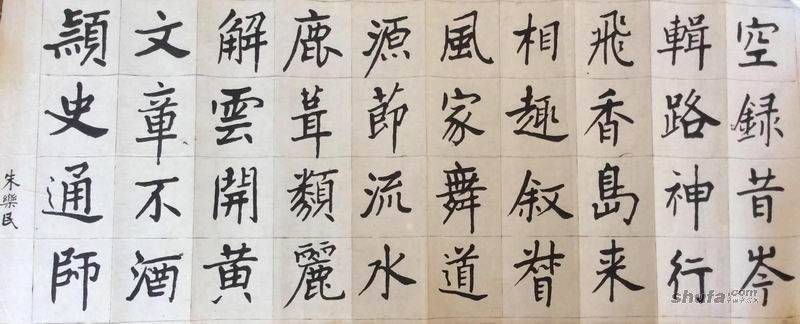 空録昔岑
輯路神行
飛香島来
相趣叙
風家舞道
源節流水
鹿葺類麗
解雲開黄
文章不酒
頴史通師
朱樂民
shufa.com